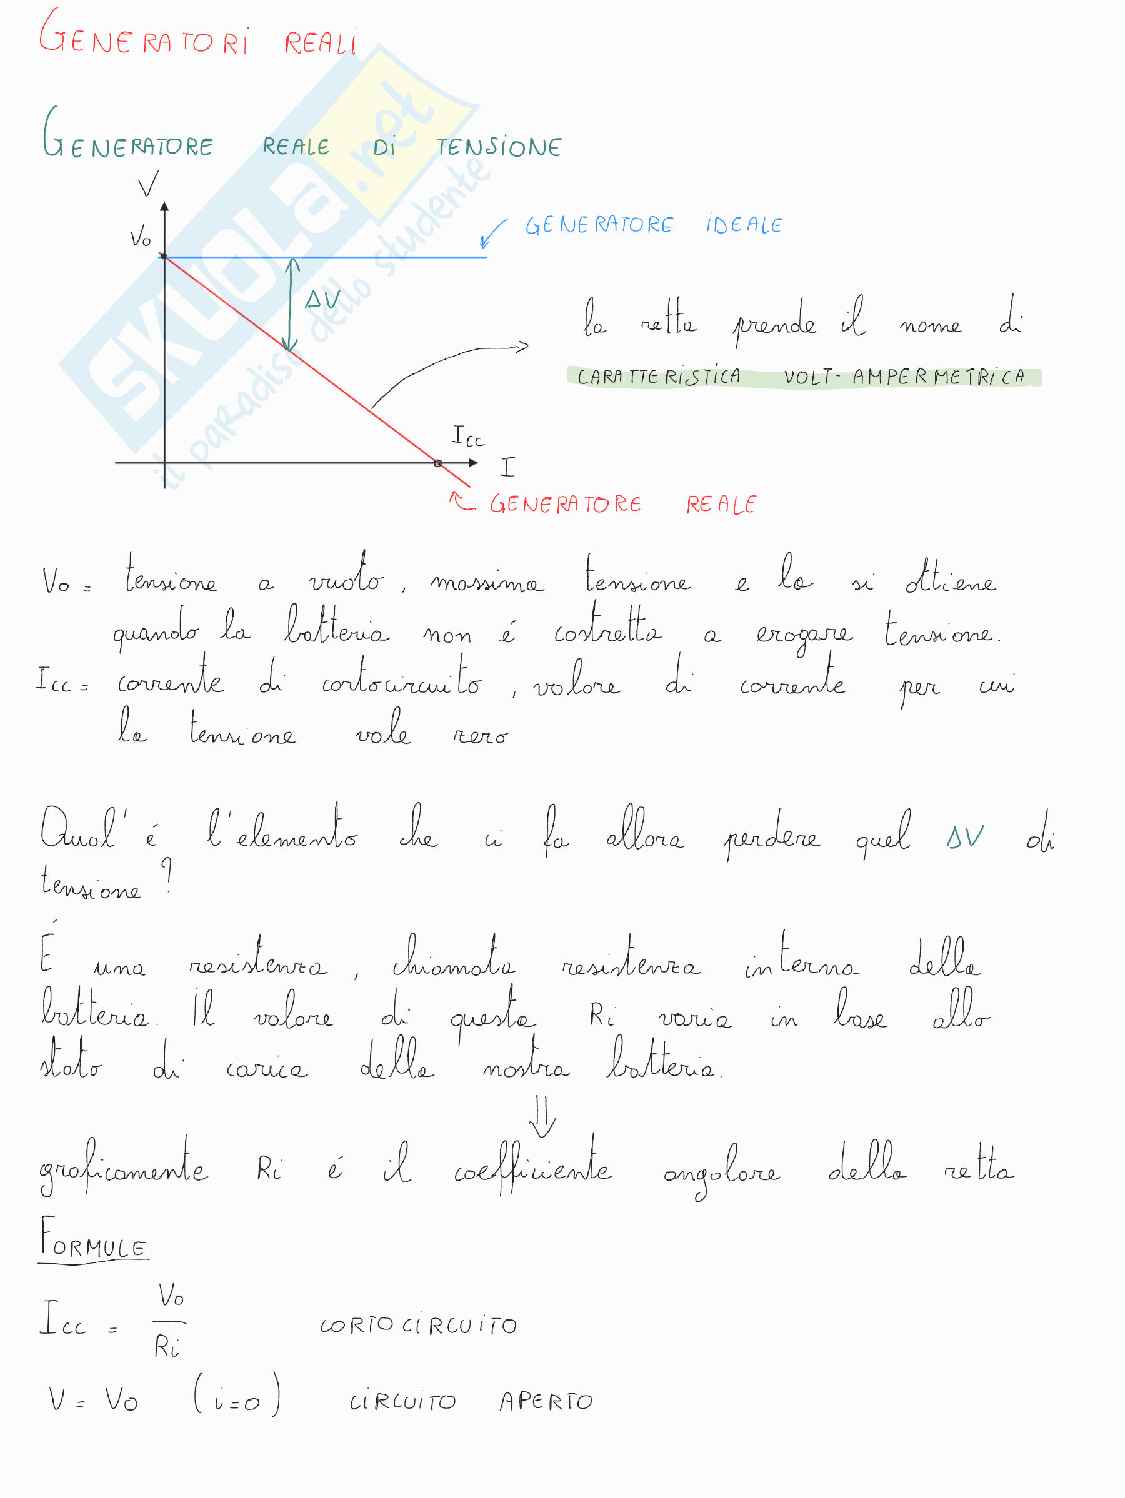 GENERATORI REALI
GENERATORE REALE DI TENSIONE
V
Vo
GENERATORE IDEALE
ΔV
la retta prende il nome di
CARATTERISTICA VOLT-AMPERMETRICA
Icc
I
GENERATORE REALE
SKUOLA.net
il paradiso dello studente
Vo = tensione a vuoto, massima tensione e la si ottiene
quando la batteria non é costretta a erogare tensione.
Icc = corrente di cortocircuito, valore di corrente per cui
la tensione vale zero
Qual' é l'elemento che ci fa allora perdere quel ΔV di
tensione?
É una resistenza, chiamata resistenza interna della
batteria. Il valore di questa Ri varia in base allo
stato di carica della nostra batteria.
⇓
graficamente Ri é il coefficiente angolare della retta
FORMULE
Icc = Vo / Ri CORTOCIRCUITO
V = Vo (i=0) CIRCUITO APERTO